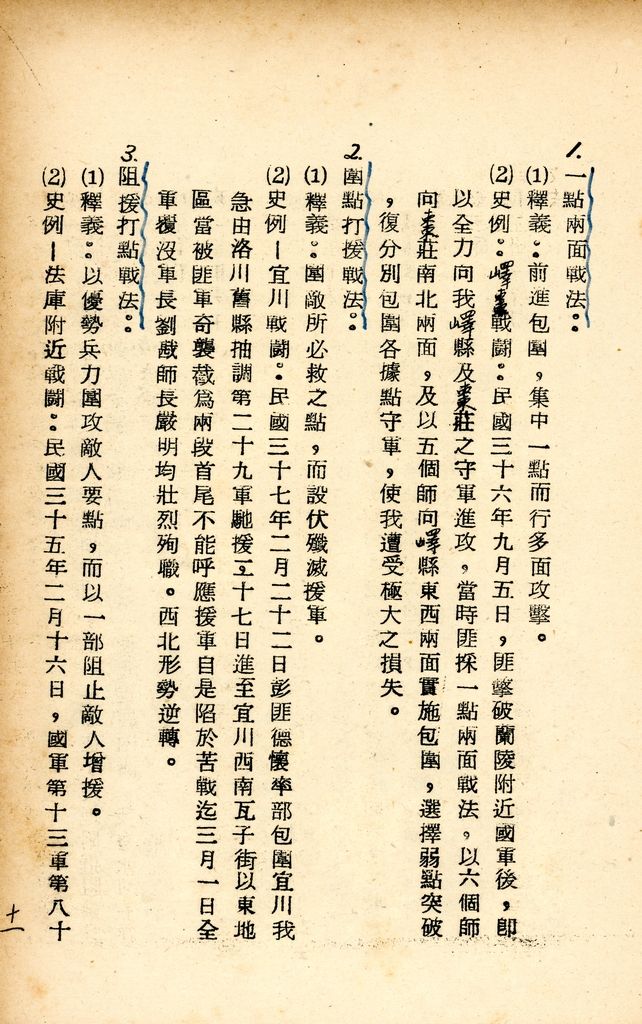 1.一點兩面戰法：
(1)釋義：前進包圍，集中一點而行多面攻擊。
(2)史例：嶧棗戰鬪：民國三十六年九月五日，匪擊破蘭陵附近國軍後，卽
以全力向我嶧縣及棗莊之守軍進攻，當時匪採一點兩面戰法，以六個師
向棗莊南北兩面，及以五個師向嶧縣東西兩面實施包圍，選擇弱點突破
，復分別包圍各據點守軍，使我遭受極大之損失。
2.圍點打援戰法：
(1)釋義：圍敵所必救之點，而設伏殲滅援軍。
(2)史例—宜川戰鬪：民國三十七年二月二十二日彭匪德懷率部包圍宜川我
急由洛川舊縣抽調第二十九軍馳援，二十七日進至宜川西南瓦子街以東地
區當被匪軍奇襲截爲兩段首尾不能呼應援軍自是陷於苦戰迄三月一日全
軍覆沒軍長劉戡師長嚴明均壯烈殉職。西北形勢逆轉。
3.阻援打點戰法：
(1)釋義：以優勢兵力圍攻敵人要點，而以一部阻止敵人增援。
(2)史例—法庫附近戰鬪：民國三十五年二月十六日，國軍第十三軍第八十
十一